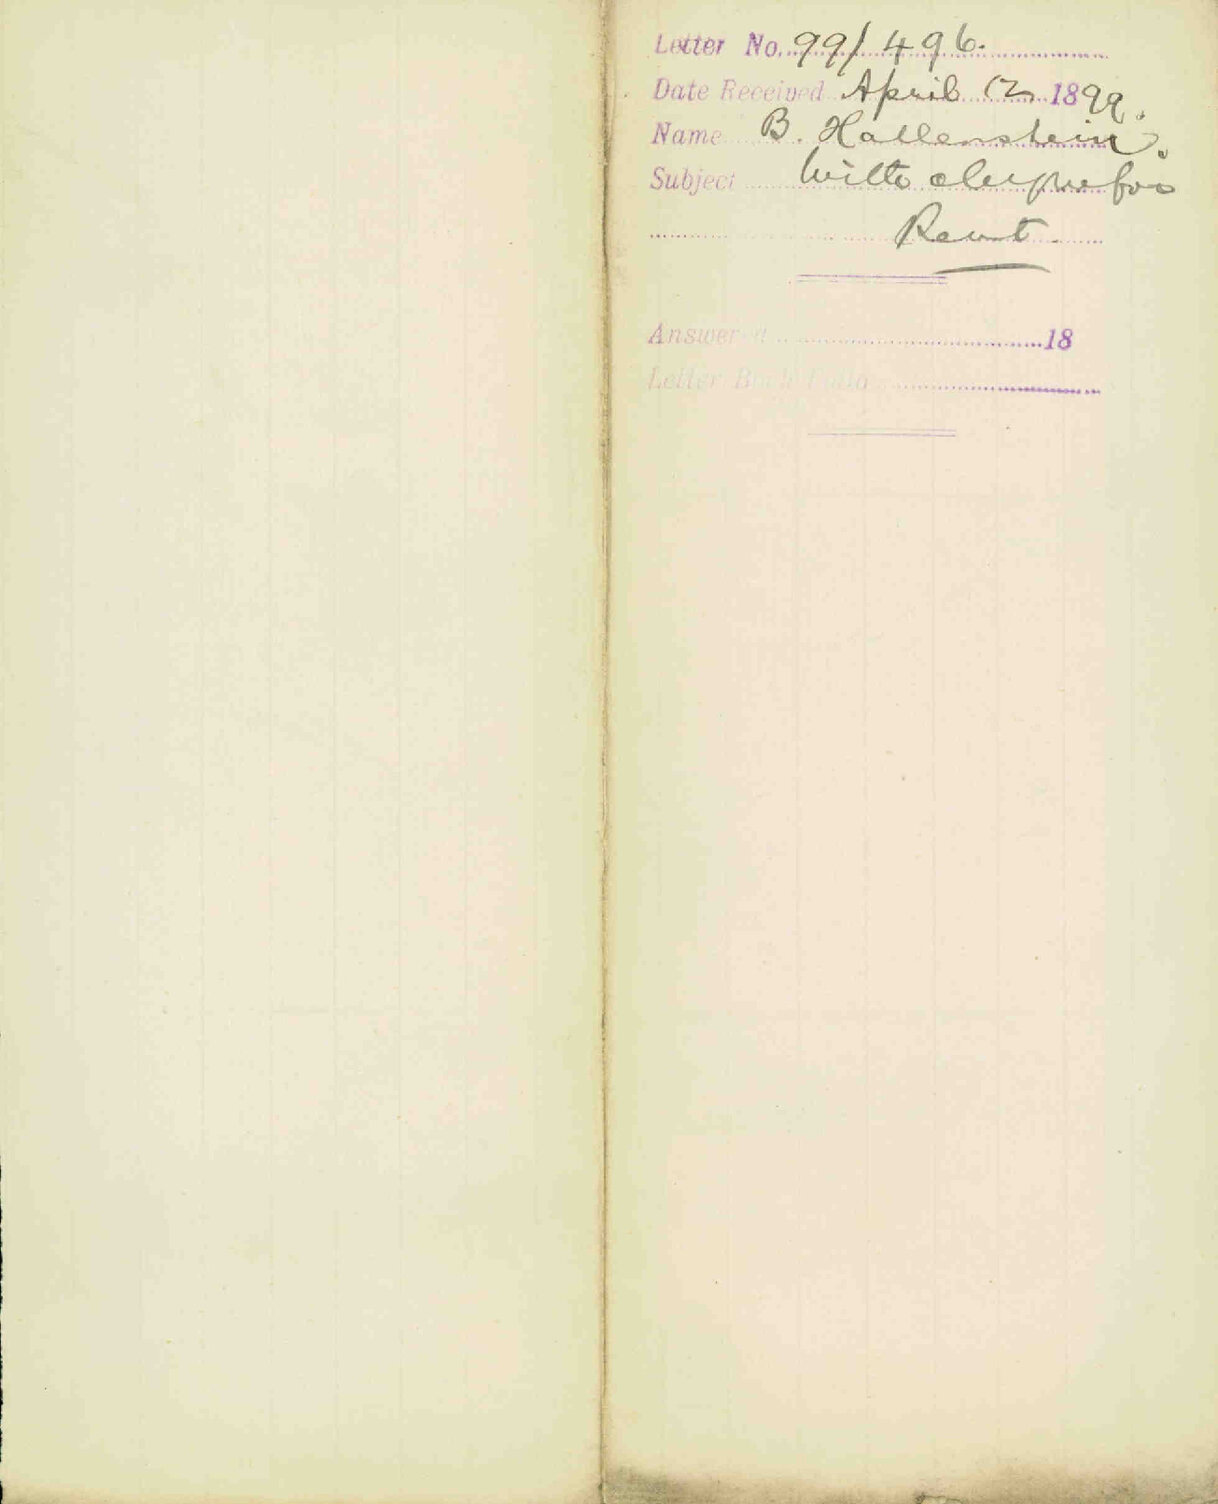 Letter No. 99/496.
Date Received April 12 1899.
Name B. Hallenstein.
Subject With cheque for
Rent.
Answered 18
Letter Book Folio